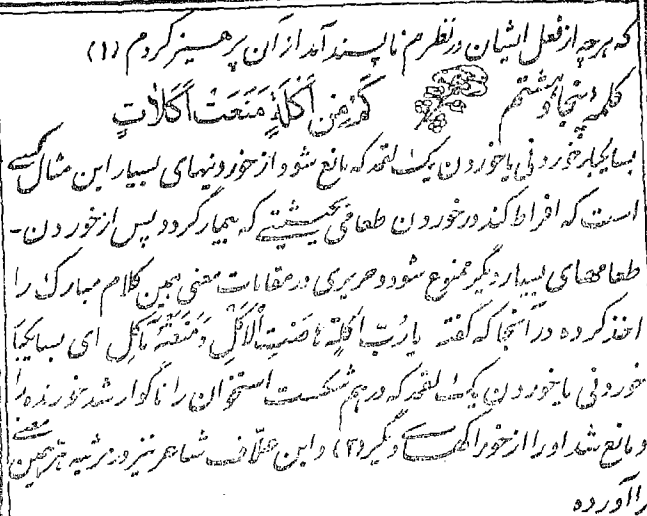 که هرچه از فعل ایشان در نظرم ناپسند آمد از آن پرهیز کردم (۱)
کلمهٔ پنجاه و هشتم كَمْ مِنْ أَكْلَةٍ مَنَعَتْ أَكَلَاتٍ
بسا یکبار خوردنی یا خوردن یک لقمه که مانع شود از خوردنیهای بسیار این مثال کسی
است که افراط کند در خوردن طعامی بحیثیتی که بیمار گردد و پس از خوردن-
طعامهای بسیار دیگر ممنوع شود و حریری در مقامات معنی همین کلام مبارک را
اخذ کرده در آنجا که گفته یا رُبَّ اکلةٍ هاضت الاکل و منعته مآکل ای بسا یکجا
خوردنی یا خوردن یک لقمه که در هم شکست استخوان را ناگوار شد خورنده را
و مانع شد او را از خوراکهای دیگر (۲) و ابن علّاف شاعر نیز در مرثیه هر همین معنی
را آورده